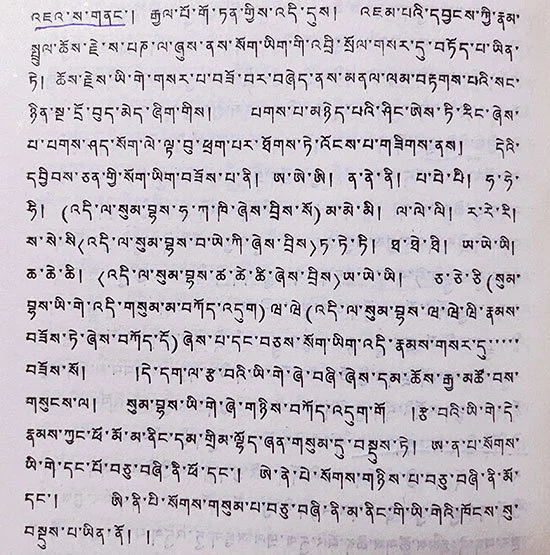 འཇའ་ས་གནང་། རྒྱལ་པོ་གོ་ཏན་གྱིས་འདི་དུས། འཇམ་པའི་དབྱངས་ཀྱི་རྣམ་
སྤྲུལ་ཆོས་རྗེ་ས་པཎ་ལ་ཞུས་ནས་སོག་ཡིག་གི་འབྲི་སྲོལ་གསར་དུ་བཏོད་པ་ཡིན་
ཏེ། ཆོས་རྗེས་ཡི་གེ་གསར་པ་བཟོ་བར་བཞེད་ནས་མནལ་ལམ་བརྟགས་པའི་སང་
ཉིན་སྔ་དྲོ་བུད་མེད་ཞིག་གིས། པགས་པ་མཉེད་པའི་ཤིང་ཨེས་ཏི་རིང་ཞེས་
པ་པགས་ཤད་སོག་ལེ་ལྟ་བུ་ཕྲག་པར་ཐོགས་ཏེ་འོངས་པ་གཟིགས་ནས། དེའི་
དབྱིབས་ཅན་གྱི་སོག་ཡིག་བཟོས་པ་ནི། ཨ་ཨེ་ཨི། ན་ནེ་ནི། པ་པེ་པི། ཧ་ཧེ་
ཧི། (འདི་ལ་སུམ་བྷས་ཧ་ཀ་ཁི་ཞེས་བྲིས་སོ) མ་མེ་མི། ལ་ལེ་ལི། ར་རེ་རི།
ས་སེ་སི(འདི་ལ་སུམ་བྷས་བ་ཡེ་ཀི་ཞེས་བྲིས)ཏ་ཏེ་ཏི། ཐ་ཐེ་ཐི། ཡ་ཡེ་ཡི།
ཆ་ཆེ་ཆི། (འདི་ལ་སུམ་བྷས་ཚ་ཚེ་ཚི་ཞེས་བྲིས)ཡ་ཡེ་ཡི། ཅ་ཅེ་ཅི(སུམ་
བྷས་ཡི་གེ་འདི་གསུམ་མ་བཀོད་འདུག) ཝ་ཝེ(འདི་ལ་སུམ་བྷས་ཝ་ཝེ་ཝི་རྣམས་
བཟོས་ཏེ་ཞེས་བཀོད་དོ) ཞེས་པ་དང་བཅས་སོག་ཡིག་འདི་རྣམས་གསར་དུ་་་་་
བཟོས་སོ། །དེ་དག་ལ་རྩ་བའི་ཡི་གེ་ཞེ་བཞི་ཞེས་དམ་ཆོས་རྒྱ་མཚོ་བས་
གསུངས་ལ། སུམ་བྷས་ཡི་གེ་ཞེ་གཉིས་བཀོད་འདུག་གོ །རྩ་བའི་ཡི་གེ་དེ་
རྣམས་ཀྱང་ཕོ་མོ་མ་ནིང་དམ་གྲིམ་ལྷོད་ཞན་གསུམ་དུ་བསྡུས་ཏེ། ཨ་ན་པ་སོགས་
ཡི་གེ་དང་པོ་བཅུ་བཞི་ནི་ཕོ་དང་། ཨེ་ནེ་པེ་སོགས་གཉིས་པ་བཅུ་བཞི་ནི་མོ་
དང་། ཨི་ནི་པི་སོགས་གསུམ་པ་བཅུ་བཞི་ནི་མ་ནིང་གི་ཡི་གེའི་ཁོངས་སུ་
བསྡུས་པ་ཡིན་ནོ། །